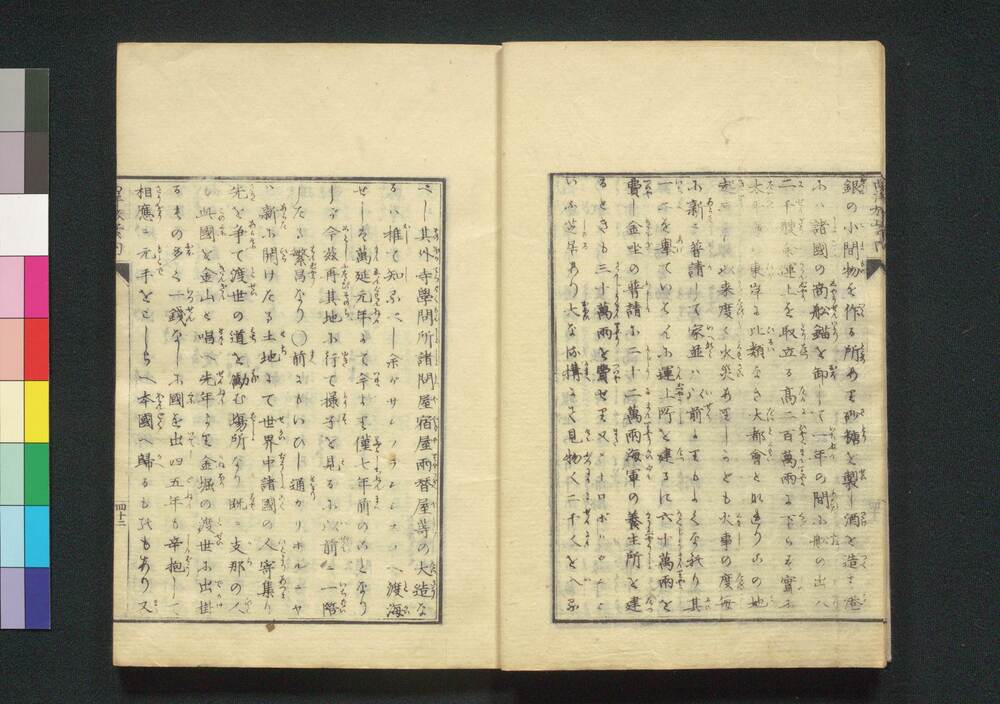 銀の小間物を作る所あり砂糖を製し酒を造る
ふハ諸國の商舩錨を卸して一年の間ふ舩の出入
二千艘余運上を取立る高二百萬兩に下らず實ニ
太平海東岸に比類なき大都會と此の地
火災ありしかども火事の度毎
ふ新に普請して家並ハ以前よりもよくなれり其
一二を擧ていへバ運上所を建るに六十萬兩を
費し金坐の普請ふ二十二萬兩海軍の養生所を建
るときも三十萬兩を費せり又メトロポリ
いふ芝居あり大なる構にて見物人二千人をへる
べし其外寺學問所諸問屋宿屋兩替屋等の大造な
るハ推て知るべし余がサンフランシスコへ渡海
せしハ萬延元年にて今より僅七年前のことなり
しが今茲再其地ふ行て様子を見るふ以前ニ一陪
したる繁昌なり〇前にもいひし通カリホルニヤ
ハ新ふ開けたる土地にて世界中諸國の人寄集り
先を争て渡世の道を勤む場所なり既ニ支那の人
も此國を金山と唱へ先年より金堀の渡世ふ出掛
るもの多く一錢なしふ國を出四五年も辛抱して
相應ニ元手をこしらへ本國へ歸るものもあり又
四十二